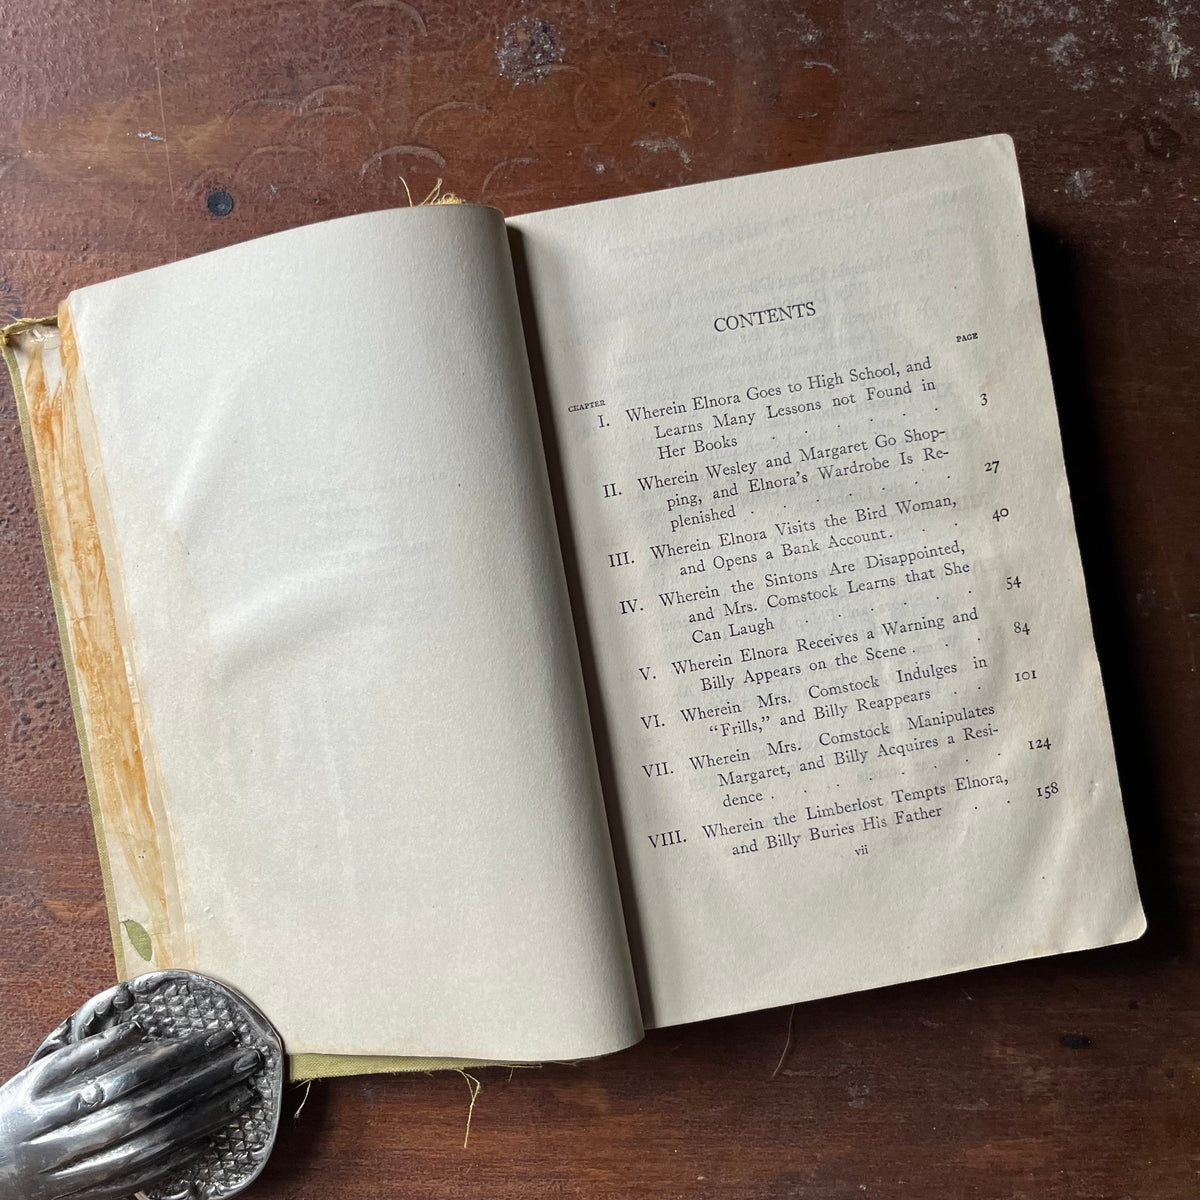 CONTENTS
CHAPTER PAGE
I. Wherein Elnora Goes to High School, and
Learns Many Lessons not Found in
Her Books . . . . . . 3
II. Wherein Wesley and Margaret Go Shop-
ping, and Elnora's Wardrobe Is Re-
plenished . . . . . . 27
III. Wherein Elnora Visits the Bird Woman,
and Opens a Bank Account . . . 40
IV. Wherein the Sintons Are Disappointed,
and Mrs. Comstock Learns that She
Can Laugh . . . . . . 54
V. Wherein Elnora Receives a Warning and
Billy Appears on the Scene . . . 84
VI. Wherein Mrs. Comstock Indulges in
“Frills,” and Billy Reappears . . 101
VII. Wherein Mrs. Comstock Manipulates
Margaret, and Billy Acquires a Resi-
dence . . . . . . . 124
VIII. Wherein the Limberlost Tempts Elnora,
and Billy Buries His Father . . 158
vii